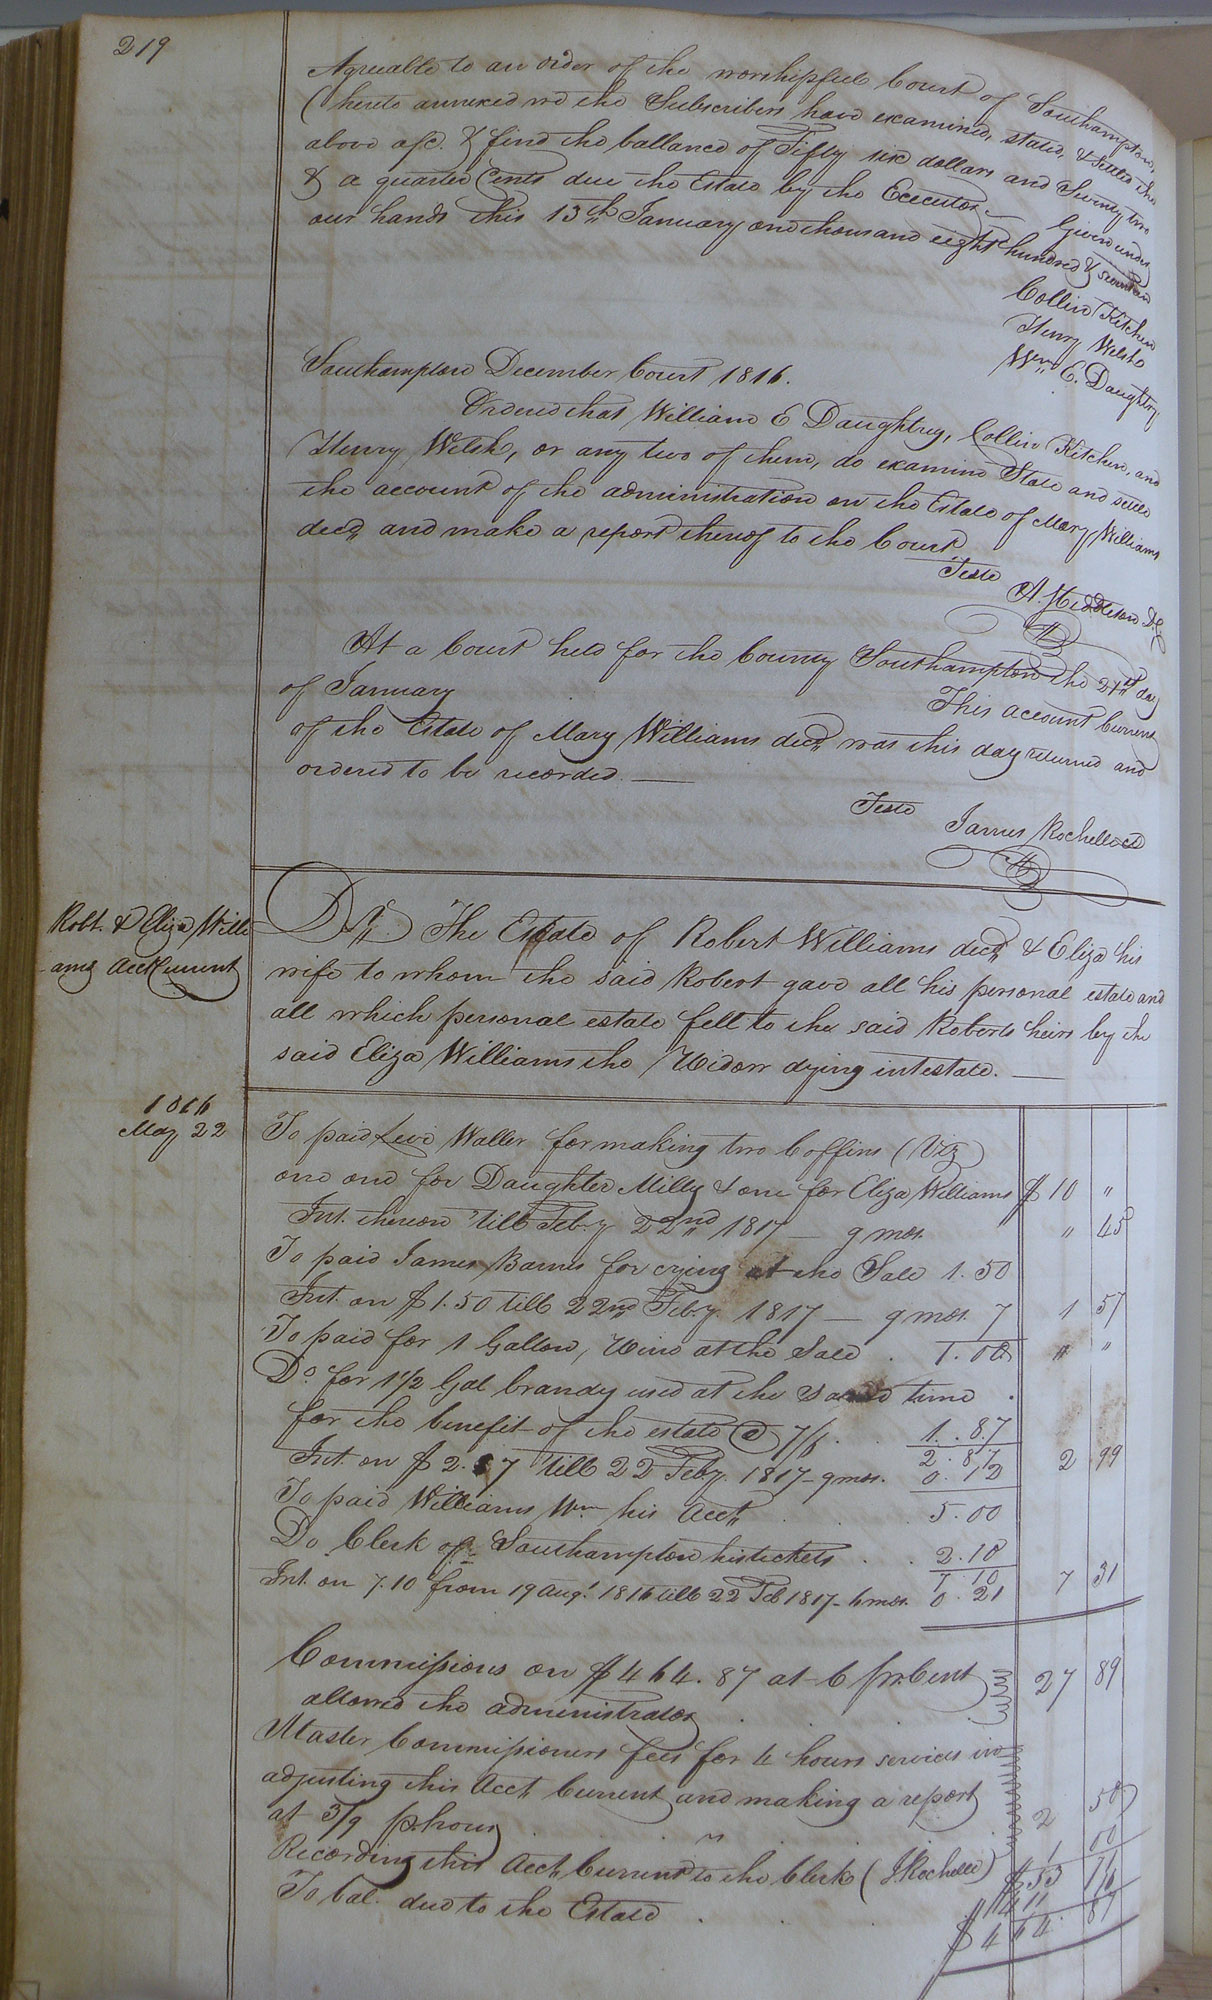 219
Agreeable to an order of the worshipfull Court of Southampton,
(hereto annexed we the Subscribers have examined, stated, & settled the
above a/c. & find the ballance of Fifty six dollars and Seventy two
& a quarter Cents due the Estate by the Executor — Given under
our hands this 13th January one thousand eight hundred & seventeen
Collin Kitchen
Henry Welsh
Wm. E. Daughtry.
Southampton December Court 1816.
Ordered that William E Daughtry, Collin Kitchen, and
Henry Welsh, or any two of them, do examine State and settle
the account of the administration on the Estate of Mary Williams
decd. and make a report thereof to the Court
Teste
A. Middleton DC
At a Court held for the County Southampton the 21st day
of January
This account Current
of the Estate of Mary Williams decd. was this day returned and
ordered to be recorded —
Teste
James Rochelle cl
Robt. & Eliza Willi
ams Acct Current
Dr. The Estate of Robert Williams decd. & Eliza his
wife to whom the said Robert gave all his personal estate and
all which personal estate fell to the said Roberts heirs by the
said Eliza Williams the Widow dying intestate. —
1816
May 22
To paid Levi Waller for making two Coffins (Viz
one one for Daughter Milly & one for Eliza Williams $ 10 "
Int. thereon 'till Feb.y 22nd 1817 — 9 mos. " 45
To paid James Barnes for crying at the Sale 1.50
Int. on $1.50 till 22nd Feb.y. 1817 — 9 mos. 7 1 57
To paid for 1 Gallon, Wine at the Sale . 1.00 " "
Do for 1 1/2 Gal brandy used at the same time .
for the benefit of the estate @ 7/6 . . 1..87
2.87
Int. on $2.87 till 22 Feby. 1817 - 9 mos. 0.12 2 99
To paid Williams Wm his Acct. . . 5.00
Do Clerk of Southampton his tickets . . 2.10
7 10
Int. on 7.10 from 19 Augt. 1816 till 22 Feb 1817 - 6 mos. 0.21 7 31
Commissions on $464.87 at 6 pr. Cent
allowed the administrator . . . 27 89
Master Commissioners fees for 4 hours services in
adjusting this Acct. Current and making a report
at 3/9 p. hour . . . 2 50
Recording this Acct. Current to the Clerk (J. Rochelle) 1 00
$ 53 76
To bal. due to the Estate . . 411 "
$ 464. 87